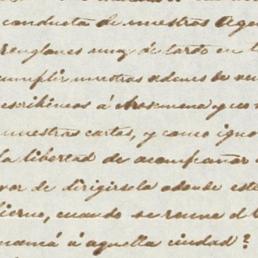 conducta de nuestros Agen
renglones muy de tarde en t
cumplir nuestras ordenes lo ve
escribimos á Arosemena y co n
nuestras cartas, y como igno
la libertad de acompañar
vor de dirigirsela adonde este
bierno, cuando se reune el C
namá á aquella ciudad?